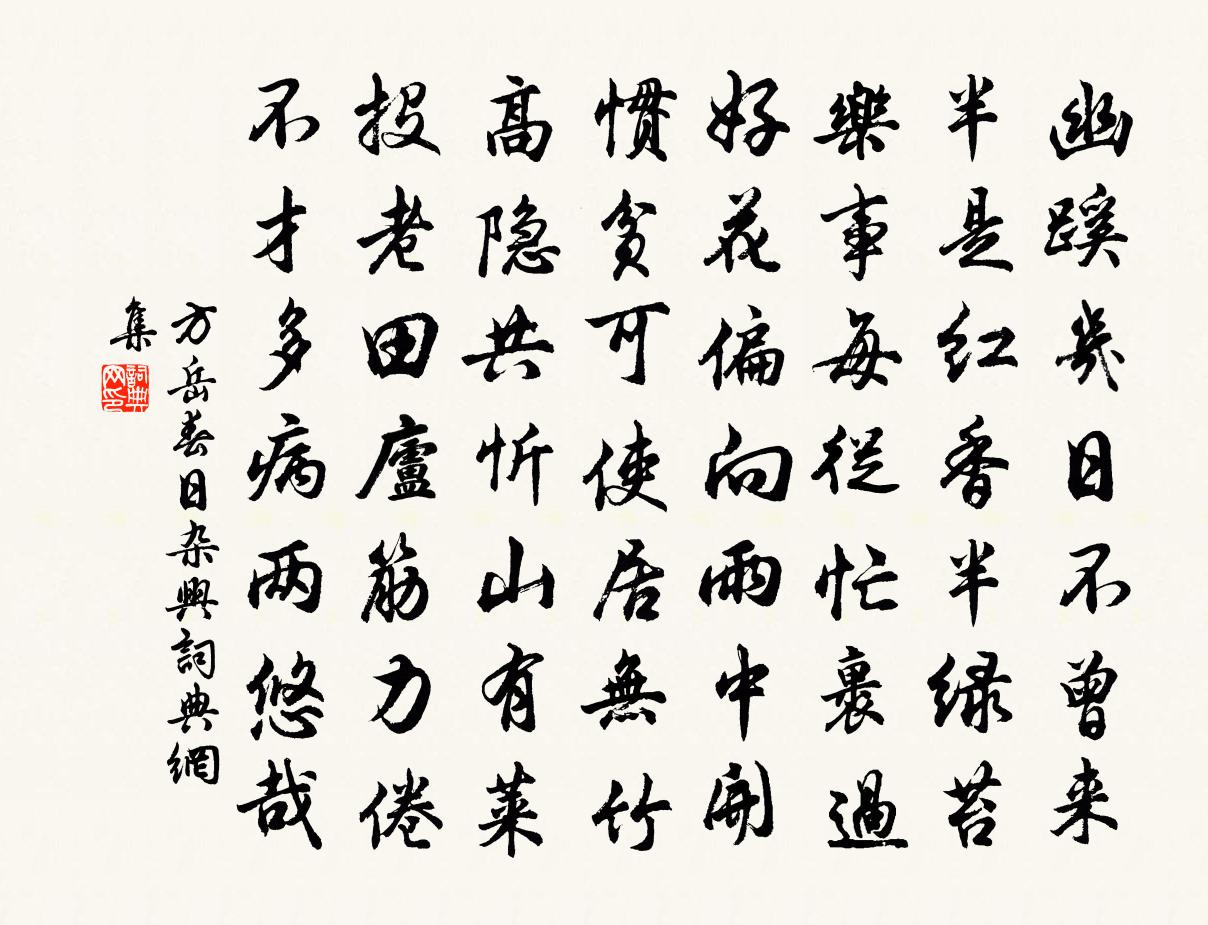 幽蹊幾日不曾来
半是红香半绿苔
樂事每從忙裏過
好花偏向雨中開
慣貧可使居無竹
高隐共忻山有莱
投老田廬筋力倦
不才多病两悠哉
方岳春日杂興詞典網
集
詞典网印